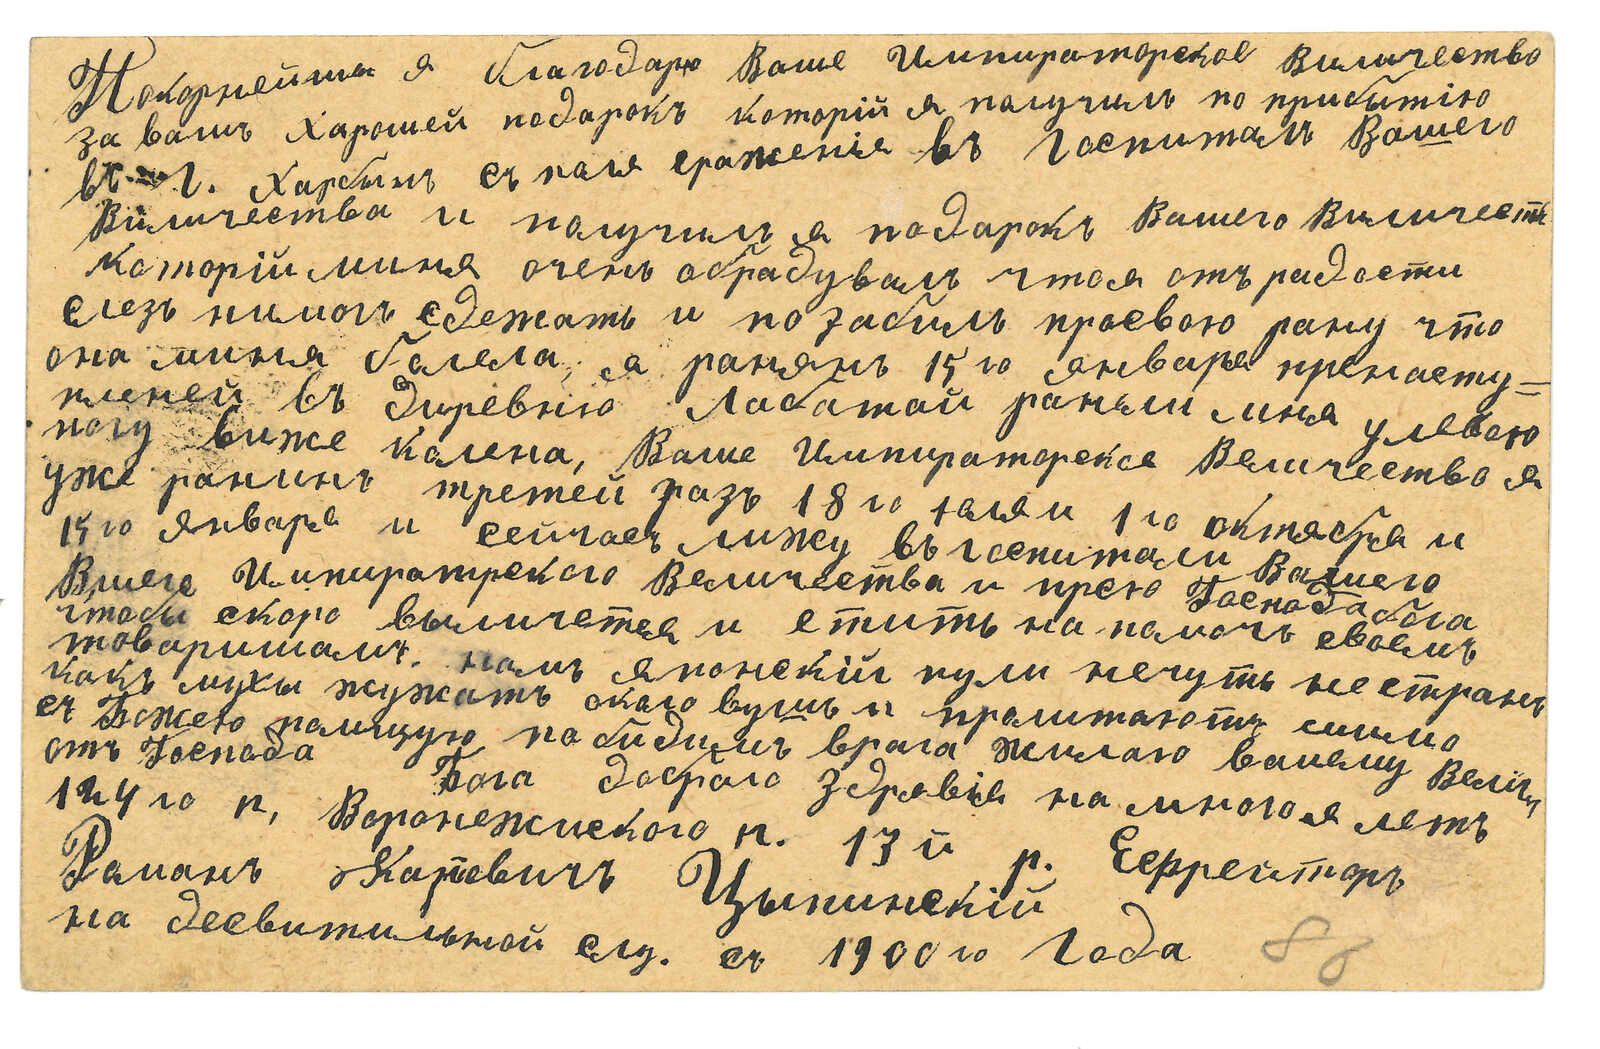 Покорнейши я благодарю Ваше Импираторское Виличество
за вашъ Харошей подарокъ которій я получилъ по прибытію
въ г. Харбынъ съ поля сраженія въ Госпиталъ Вашего
Виличества и получилъ я подарокъ Вашего Виличеств
которій миня очень обрадувалъ что я отъ радости
слезъ нимогъ сдежать и позабилъ просвою рану что
она миня болела, я ранянъ 15 го января принасту=
пленей въ диревню Лабатай раняли миня улевою
ногу виже колена, Ваше Импираторское Величество я
уже ранинъ третей разъ 18 го іюля и 1 го октября и
15 го января и сейчасъ лижу въ госпитали Вашего
Вшего Импиратрского Величества и прсю Господа бога
чтобы скоро выличется и стить на памочь своемъ
товаришамъ. намъ японскій пули нечуть не страны
какъ мухы жужатъ окало вушъ и пралитаютъ мимо
съ Божею памищую пабидимъ врага жилаю вашему Велич
отъ Господа Бога доброго здравія на многоя летъ
124 го п, Воронежиского п. 13 й р. Ефрейторъ
Раманъ Карпевичъ Цыпинскій
на десвитильной слу. съ 1900 го Года
86